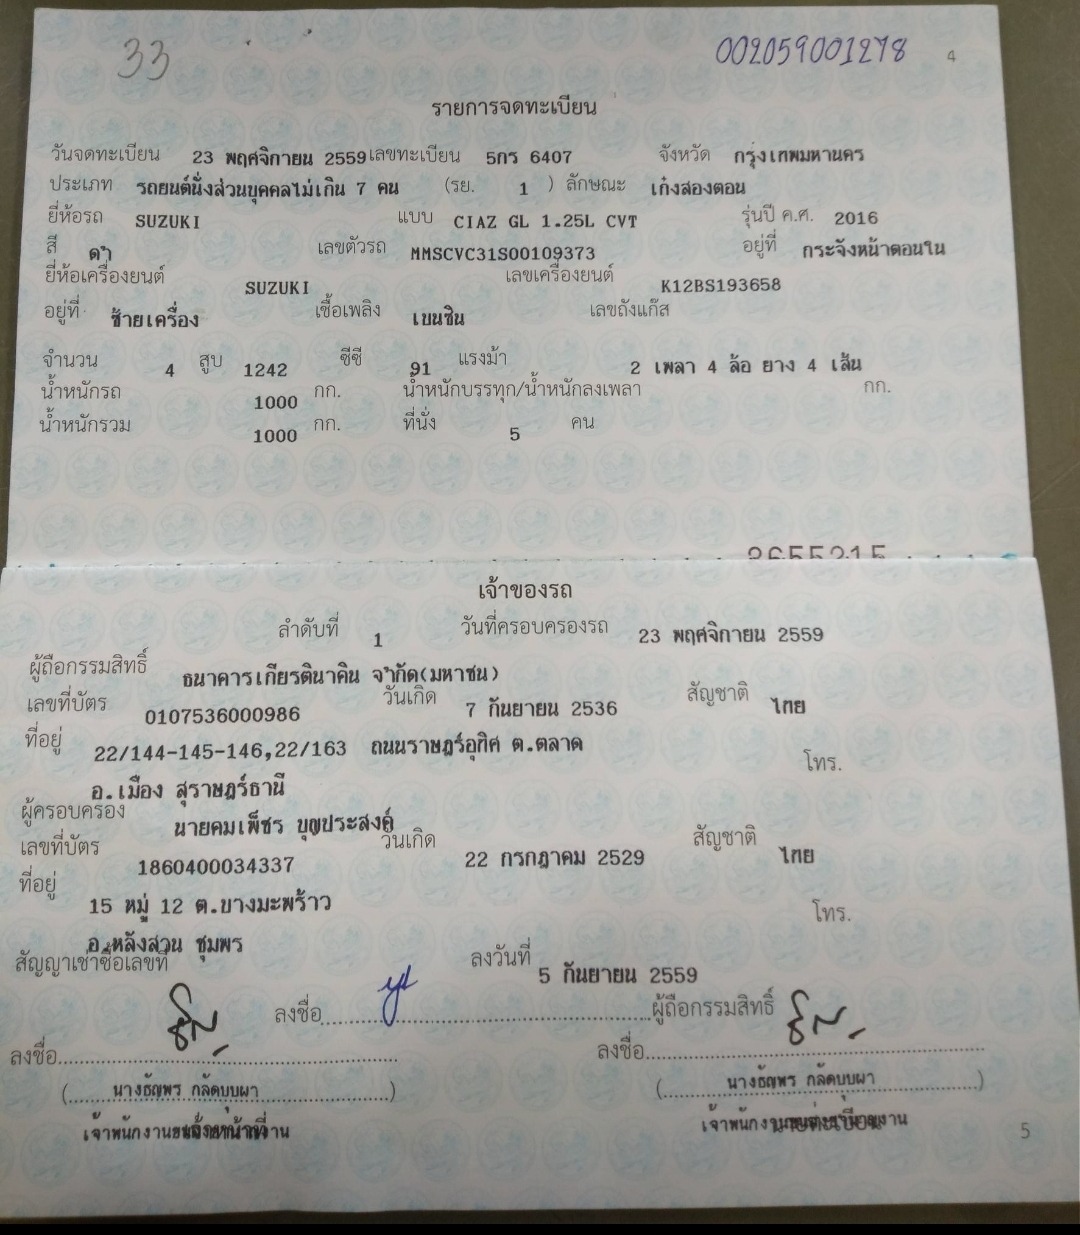 33
002059001278 4
รายการจดทะเบียน
วันจดทะเบียน 23 พฤศจิกายน 2559 เลขทะเบียน 5กร 6407 จังหวัด กรุงเทพมหานคร
ประเภท รถยนต์นั่งส่วนบุคคลไม่เกิน 7 คน (รย. 1 ) ลักษณะ เก๋งสองตอน
ยี่ห้อรถ SUZUKI แบบ CIAZ GL 1.25L CVT รุ่นปี ค.ศ. 2016
สี ดำ เลขตัวรถ MMSCVC31S00109373 อยู่ที่ กระจังหน้าตอนใน
ยี่ห้อเครื่องยนต์ SUZUKI เลขเครื่องยนต์ K12BS193658
อยู่ที่ ซ้ายเครื่อง เชื้อเพลิง เบนซิน เลขถังแก๊ส
จำนวน 4 สูบ 1242 ซีซี 91 แรงม้า 2 เพลา 4 ล้อ ยาง 4 เส้น
น้ำหนักรถ 1000 กก. น้ำหนักบรรทุก/น้ำหนักลงเพลา กก.
น้ำหนักรวม 1000 กก. ที่นั่ง 5 คน
เจ้าของรถ
ลำดับที่ 1 วันที่ครอบครองรถ 23 พฤศจิกายน 2559
ผู้ถือกรรมสิทธิ์ ธนาคารเกียรตินาคิน จำกัด(มหาชน)
เลขที่บัตร 0107536000986 วันเกิด 7 กันยายน 2536 สัญชาติ ไทย
ที่อยู่ 22/144-145-146,22/163 ถนนราษฎร์อุทิศ ต.ตลาด โทร.
อ.เมือง สุราษฎร์ธานี
ผู้ครอบครอง นายคมเพ็ชร บุญประสงค์
เลขที่บัตร 1860400034337 วันเกิด 22 กรกฎาคม 2529 สัญชาติ ไทย
ที่อยู่ 15 หมู่ 12 ต.บางมะพร้าว โทร.
อ.หลังสวน ชุมพร
สัญญาเช่าซื้อเลขที่ ลงวันที่ 5 กันยายน 2559
ลงชื่อ ผู้ถือกรรมสิทธิ์
ลงชื่อ ลงชื่อ
( นางธัญพร กลัดบุบผา ) ( นางธัญพร กลัดบุบผา )
5